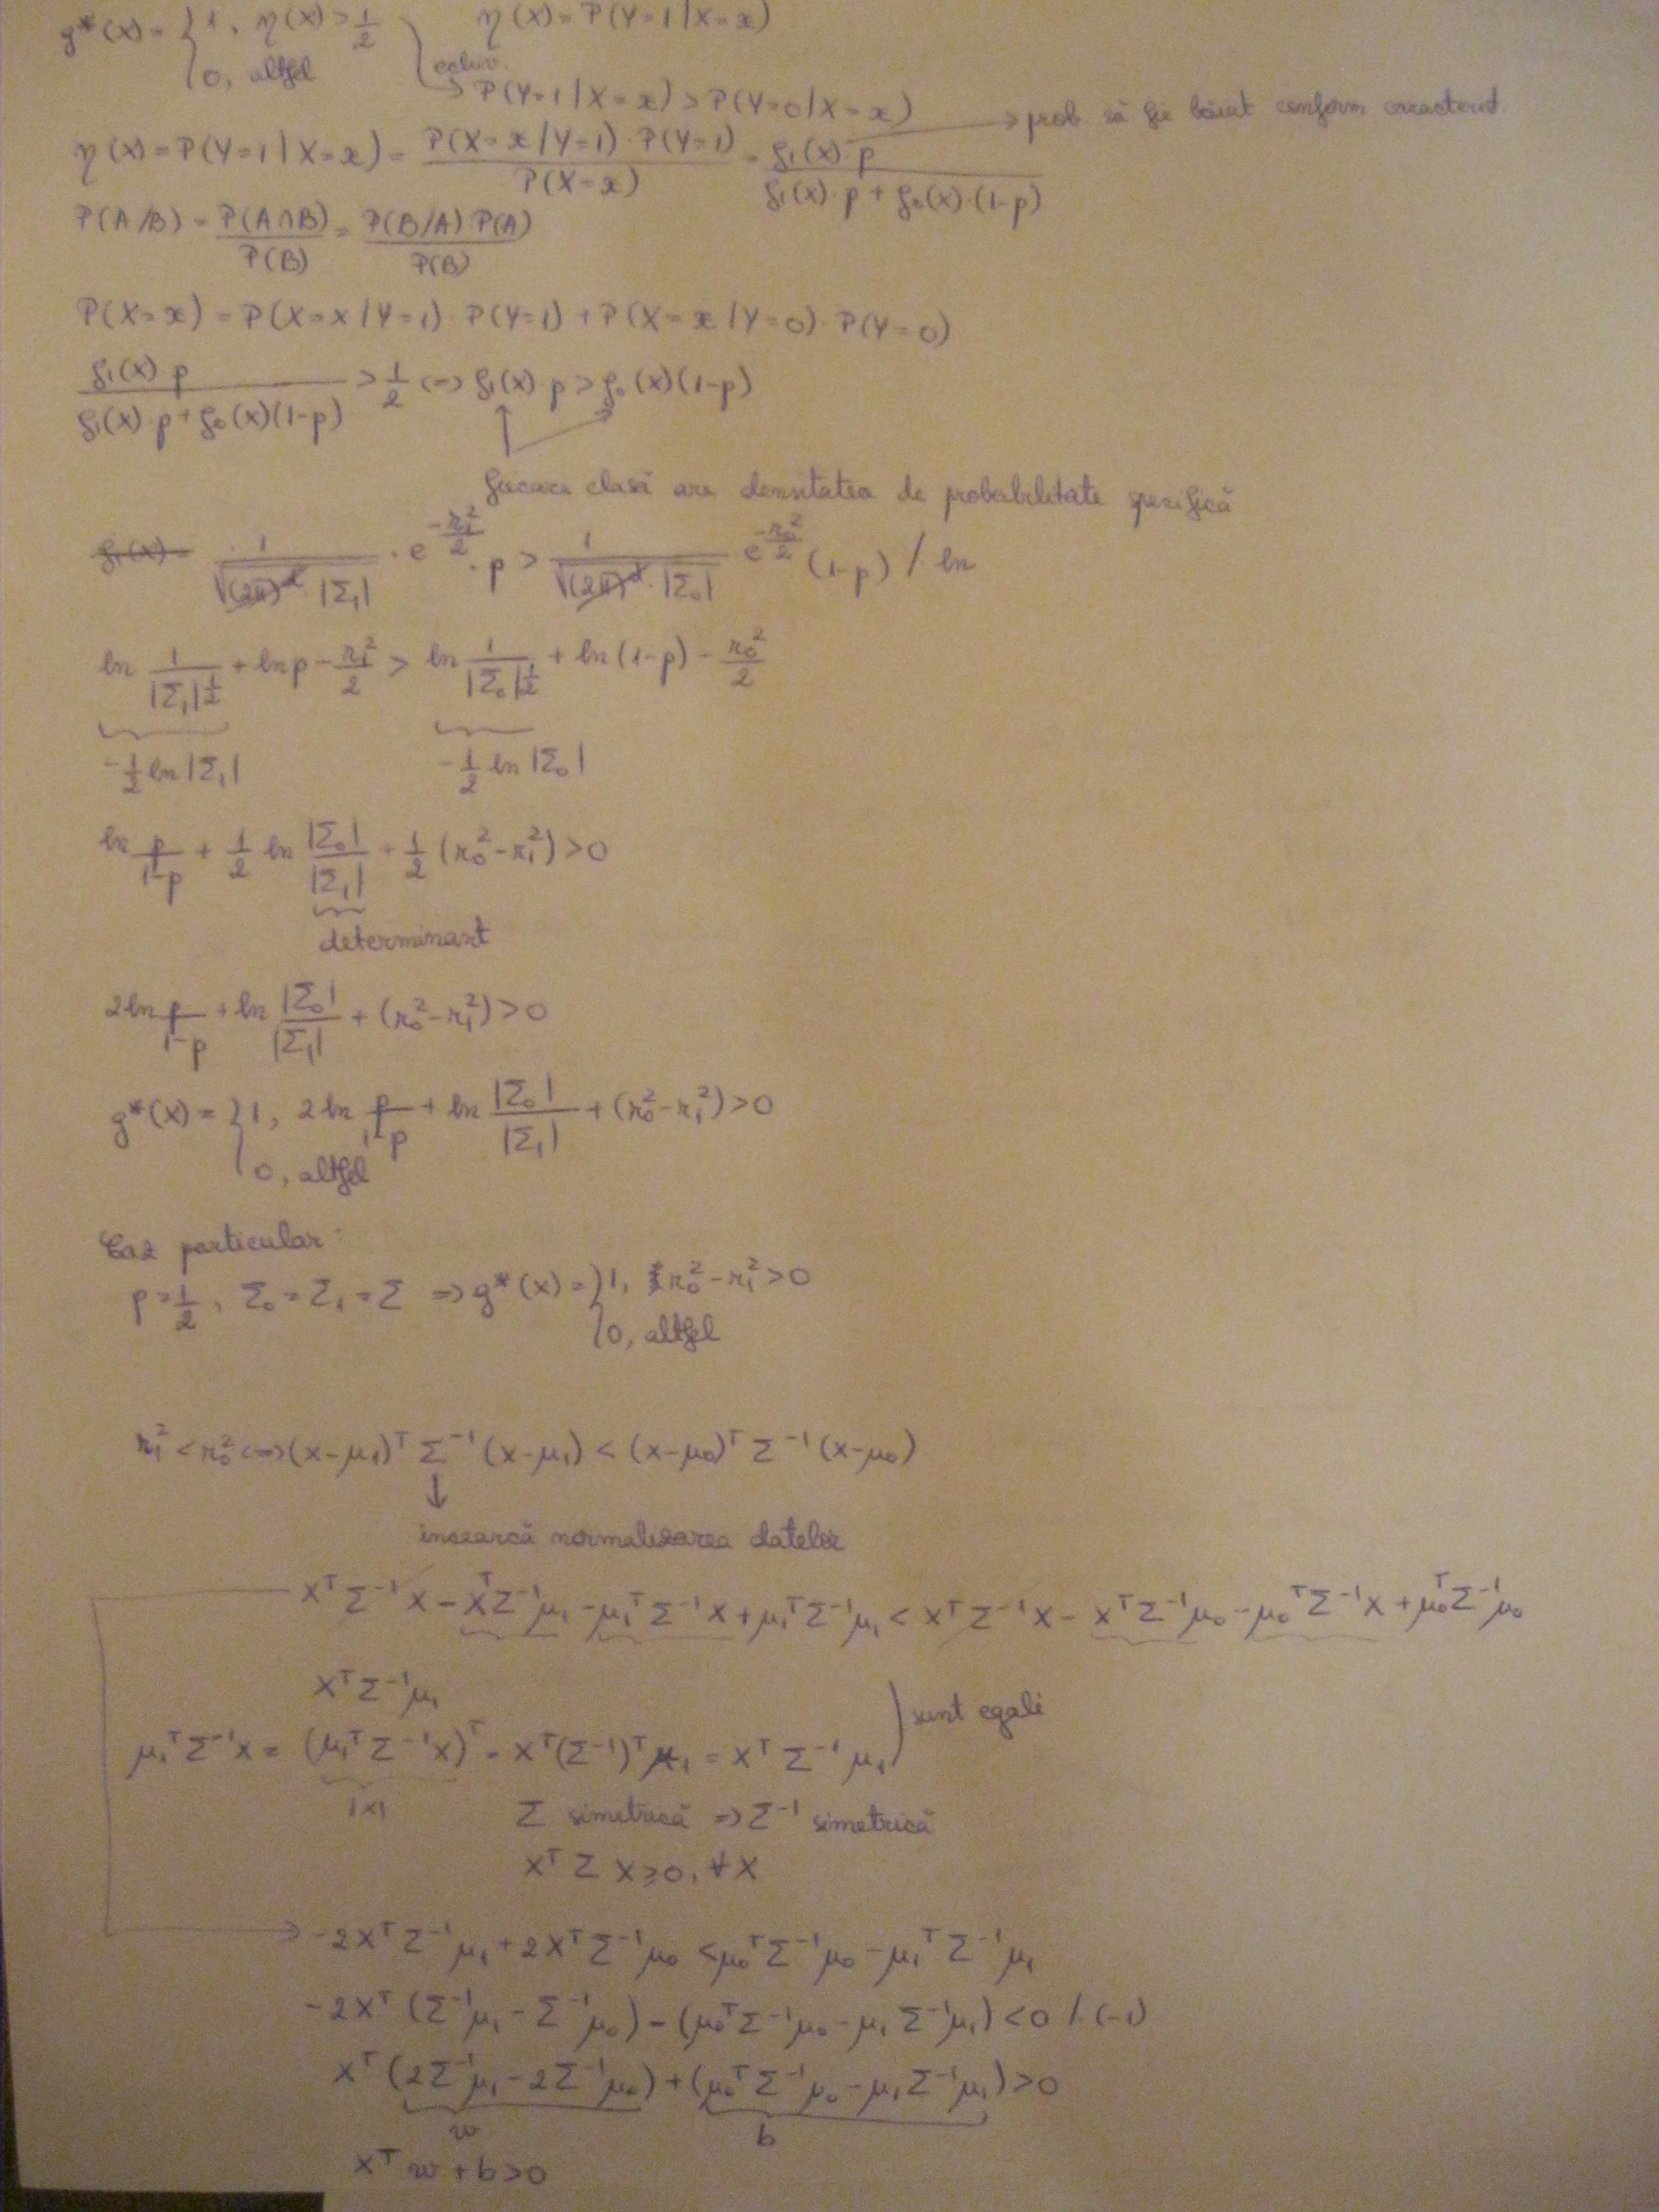 g*(x) = { 1, η(x) > 1/2    η(x) = P(Y=1 | X=x)
0, altfel
echiv.
→ P(Y=1 | X=x) > P(Y=0 | X=x)
→ prob. să fie băiat conform caracterist.
η(x) = P(Y=1 | X=x) = P(X=x | Y=1) · P(Y=1) / P(X=x) = f₁(x) · p / f₁(x) · p + f₀(x) · (1-p)
P(A/B) = P(A∩B) / P(B) = P(B/A) · P(A) / P(B)
P(X=x) = P(X=x | Y=1) · P(Y=1) + P(X=x | Y=0) · P(Y=0)
f₁(x) · p / f₁(x) · p + f₀(x)(1-p) > 1/2 <=> f₁(x) · p > f₀(x)(1-p)
fiecare clasă are densitatea de probabilitate specifică
f₁(x) = 1 / √(2π)^d · |Σ₁| · e^(-r₁²/2) · p > 1 / √(2π)^d · |Σ₀| e^(-r₀²/2) (1-p) / ln
ln 1/|Σ₁|^(1/2) + ln p - r₁²/2 > ln 1/|Σ₀|^(1/2) + ln(1-p) - r₀²/2
-1/2 ln |Σ₁|    -1/2 ln |Σ₀|
ln p/1-p + 1/2 ln |Σ₀|/|Σ₁| + 1/2 (r₀² - r₁²) > 0
determinant
2 ln p/1-p + ln |Σ₀|/|Σ₁| + (r₀² - r₁²) > 0
g*(x) = { 1, 2 ln p/1-p + ln |Σ₀|/|Σ₁| + (r₀² - r₁²) > 0
0, altfel
Caz particular:
p = 1/2, Σ₀ = Σ₁ = Σ => g*(x) = { 1, r₀² - r₁² > 0
0, altfel
r₁² < r₀² <=> (x-μ₁)ᵀ Σ⁻¹ (x-μ₁) < (x-μ₀)ᵀ Σ⁻¹ (x-μ₀)
↓
încearcă normalizarea datelor
xᵀ Σ⁻¹ x - xᵀ Σ⁻¹ μ₁ - μ₁ᵀ Σ⁻¹ x + μ₁ᵀ Σ⁻¹ μ₁ < xᵀ Σ⁻¹ x - xᵀ Σ⁻¹ μ₀ - μ₀ᵀ Σ⁻¹ x + μ₀ᵀ Σ⁻¹ μ₀
xᵀ Σ⁻¹ μ₁
μ₁ᵀ Σ⁻¹ x = (μ₁ᵀ Σ⁻¹ x)ᵀ = xᵀ (Σ⁻¹)ᵀ μ₁ = xᵀ Σ⁻¹ μ₁ ) sunt egali
1x1
Σ simetrică => Σ⁻¹ simetrică
xᵀ Σ x ≥ 0, ∀ x
→ -2xᵀ Σ⁻¹ μ₁ + 2xᵀ Σ⁻¹ μ₀ < μ₀ᵀ Σ⁻¹ μ₀ - μ₁ᵀ Σ⁻¹ μ₁
-2xᵀ (Σ⁻¹ μ₁ - Σ⁻¹ μ₀) - (μ₀ᵀ Σ⁻¹ μ₀ - μ₁ Σ⁻¹ μ₁) < 0 / · (-1)
xᵀ (2Σ⁻¹ μ₁ - 2Σ⁻¹ μ₀) + (μ₀ᵀ Σ⁻¹ μ₀ - μ₁ Σ⁻¹ μ₁) > 0
w    b
xᵀ w + b > 0